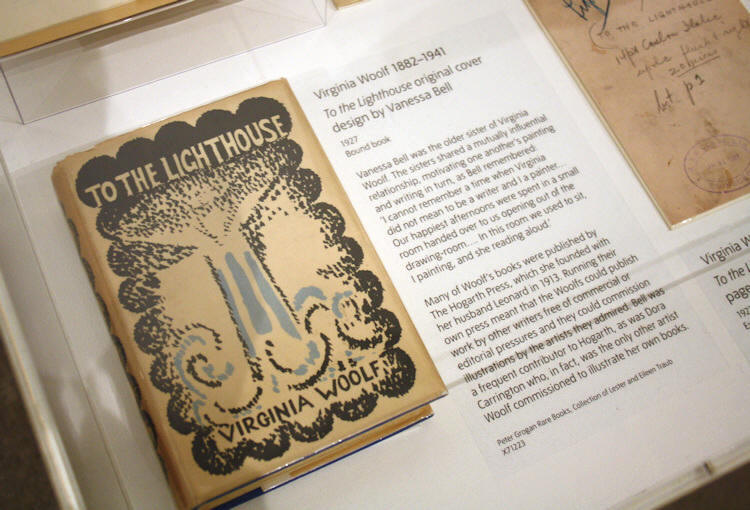 TO THE LIGHTHOUSE
VIRGINIA WOOLF
Virginia Woolf 1882–1941
To the Lighthouse original cover
design by Vanessa Bell
1927
Bound book
Vanessa Bell was the older sister of Virginia
Woolf. The sisters shared a mutually influential
relationship, motivating one another's painting
and writing in turn, as Bell remembered:
'I cannot remember a time when Virginia
did not mean to be a writer and I a painter...
Our happiest afternoons were spent in a small
room handed over to us opening out of the
drawing-room.... In this room we used to sit,
I painting, and she reading aloud.'
Many of Woolf's books were published by
The Hogarth Press, which she founded with
her husband Leonard in 1913. Running their
own press meant that the Woolfs could publish
work by other writers free of commercial or
editorial pressures and they could commission
illustrations by the artists they admired. Bell was
a frequent contributor to Hogarth, as was Dora
Carrington who, in fact, was the only other artist
Woolf commissioned to illustrate her own books.
Peter Grogan Rare Books, Collection of Lester and Eileen Traub
X71223
TO THE LIGHTHOUSE
14pt Caslon Italic
p1
Virginia W
To the L
page
192